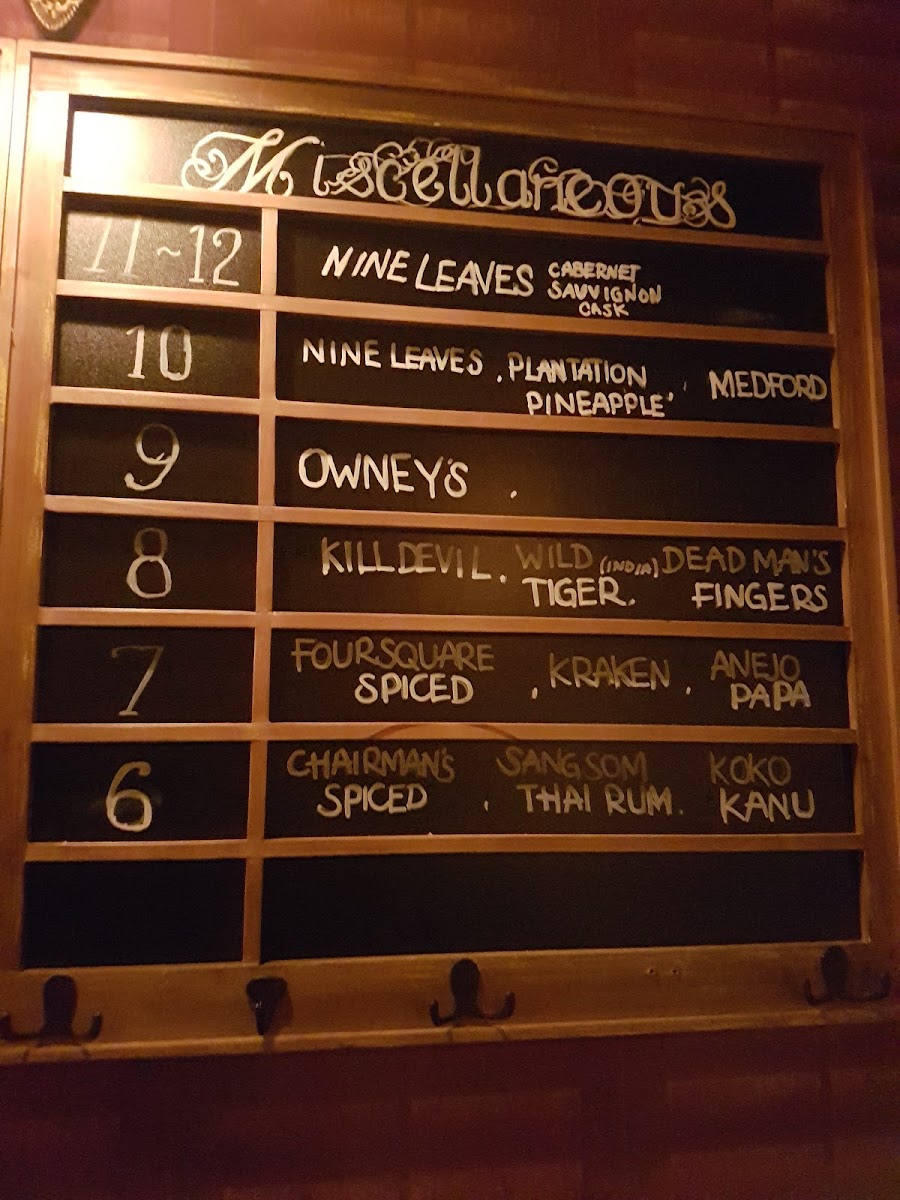 Miscellaneous
11~12 NINE LEAVES CABERNET
SAUVIGNON
CASK
10 NINE LEAVES . PLANTATION MEDFORD
PINEAPPLE'
9 OWNEY'S .
8 KILL DEVIL . WILD (INDIA) DEAD MAN'S
TIGER. FINGERS
7 FOURSQUARE . KRAKEN . ANEJO
SPICED PAPA
6 CHAIRMAN'S SANGSOM KOKO
SPICED . THAI RUM. KANU